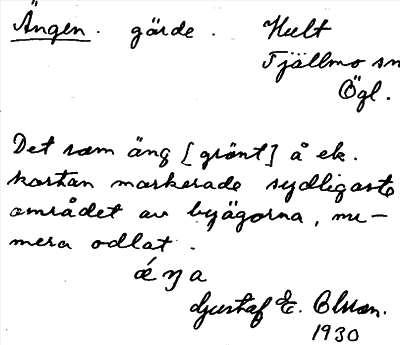 Ängen. gärde. Hult
Tjällmo sn
Ögl.
Det som äng [grönt] å ek.
kartan markerade sydligaste
området av byägorna, nu-
mera odlat.
áŋa
Gustaf E. Olsson.
1930